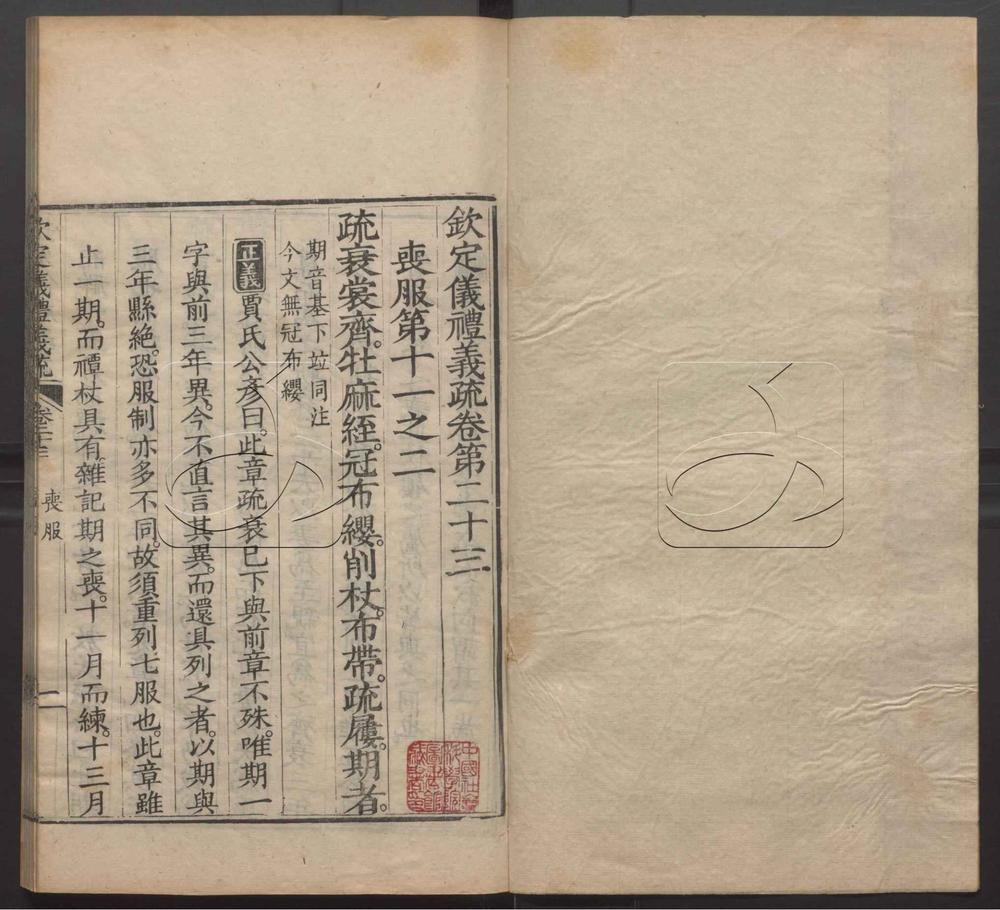 欽定儀禮義疏卷第二十三
喪服第十一之二
疏衰裳齊。牡麻絰。冠布纓。削杖。布帶。疏屨。期者。
期音基下竝同注
今文無冠布纓
正義 賈氏公彥曰。此章疏衰已下與前章不殊。唯期一
字與前三年異。今不直言其異。而還具列之者。以期與
三年縣絕。恐服制亦多不同。故須重列七服也。此章雖
止一期。而禫杖具有。雜記期之喪。十一月而練。十三月
欽定儀禮義疏 卷二十三 喪服 一